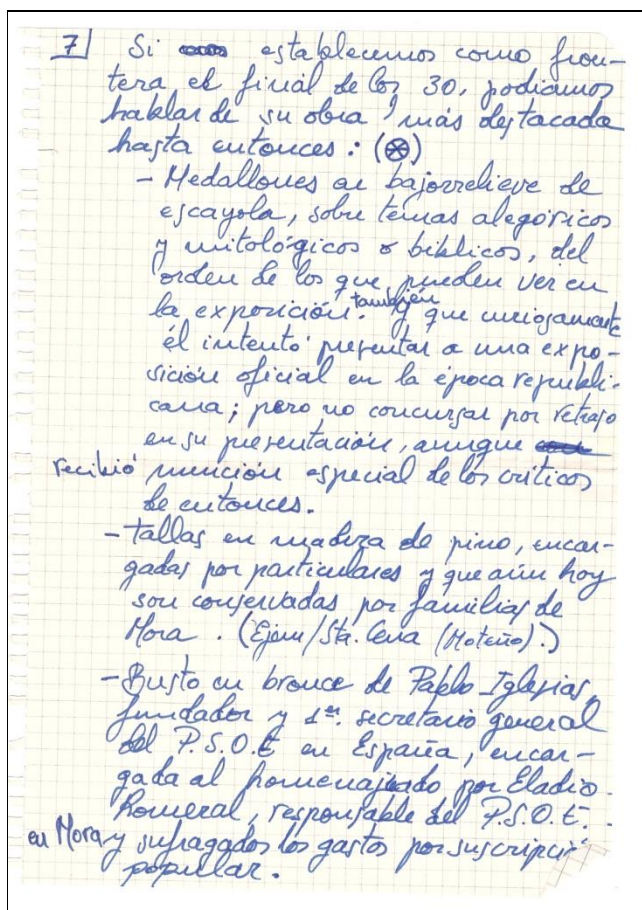 7 Si establecemos como fron-
tera el final de los 30, podíamos
hablar de su obra más destacada
hasta entonces: (⊗)
- Medallones en bajorrelieve de
escayola, sobre temas alegóricos
y mitológicos o bíblicos, del
orden de los que pueden ver en
la exposición. también y que curiosamente
él intentó presentar a una expo-
sición oficial en la época republi-
cana; pero no concursar por retraso
en su presentación, aunque
recibió mención especial de los críticos
de entonces.
- Tallas en madera de pino, encar-
gadas por particulares y que aún hoy
son conservadas por familias de
Mora. (Ejem/Sta. Cena (Moteño).)
- Busto en bronce de Pablo Iglesias,
fundador y 1er. secretario general
del P.S.O.E en España, encar-
gada al homenajeado por Eladio
Homeral, responsable del P.S.O.E.
en Mora y sufragados los gastos por suscripció
popular.